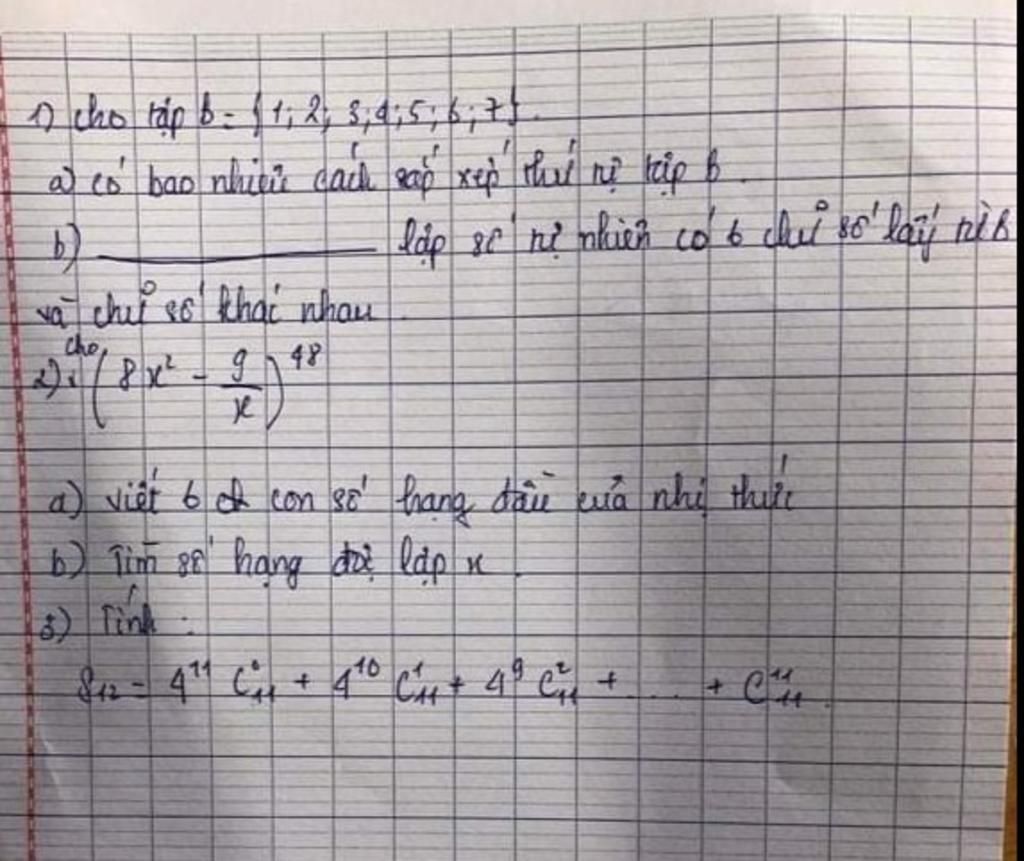 1) cho tập B = {1; 2; 3; 4; 5; 6; 7}.
a) có bao nhiêu cách sắp xếp thứ tự tập B.
b) ____________ lập số tự nhiên có 6 chữ số lấy từ B
và chữ số khác nhau.
2) cho (8x² - 9/x)^48
a) viết 6 con số hạng đầu của nhị thức
b) Tìm số hạng độc lập x.
3) Tính:
S₁₂ = 4¹¹ C⁰₁₁ + 4¹⁰ C¹₁₁ + 4⁹ C²₁₁ + .... + C¹¹₁₁.